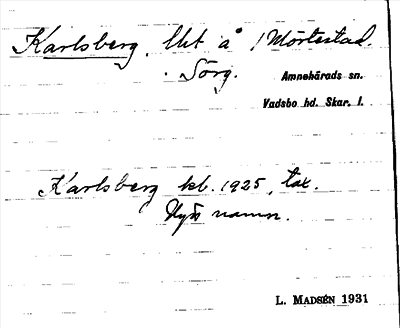 Karlsberg. lht å 1 Mörtestad.
Sörg. Amnehärads sn.
Vadsbo hd. Skar. l.
Karlsberg kb. 1925, tax.
Nytt namn.
L. MADSÉN 1931